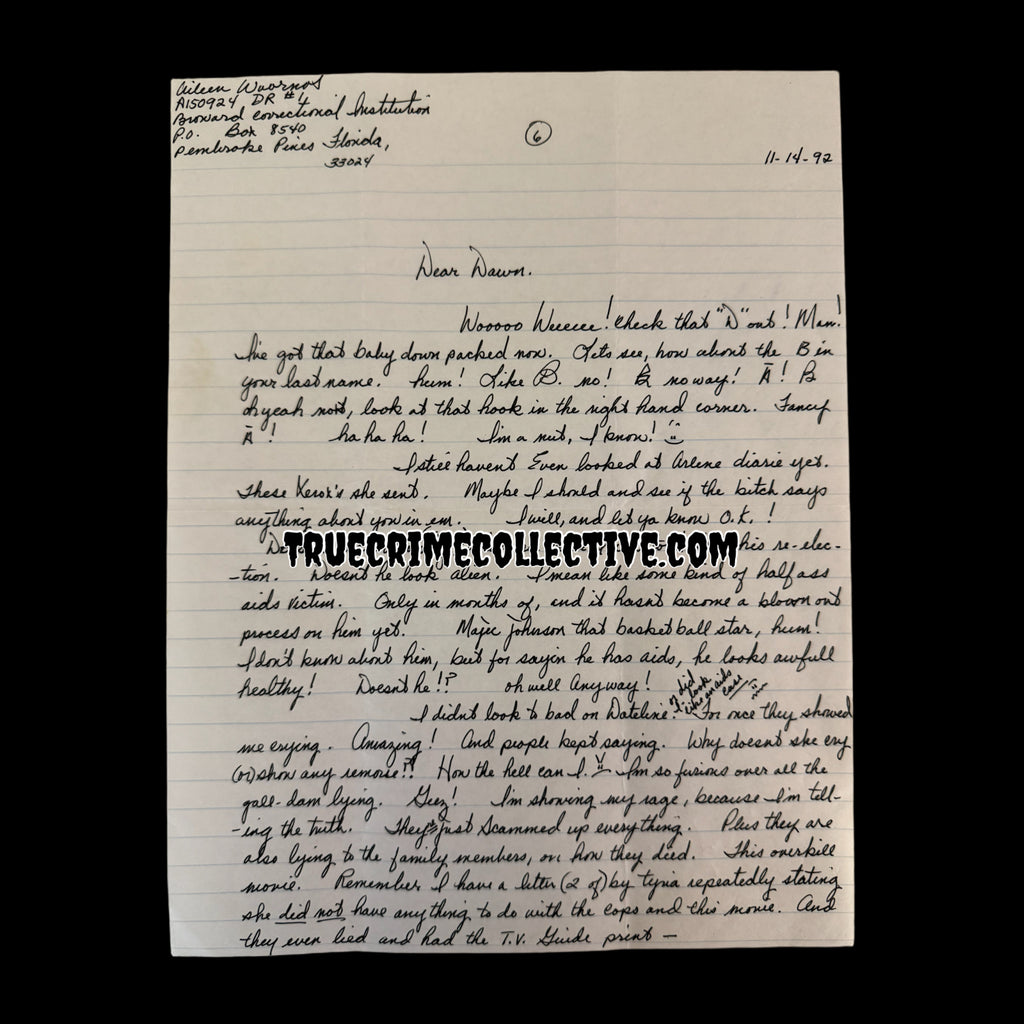 Aileen Wuornos
A150924 DR #4
Broward Correctional Institution
P.O. Box 8540
Pembroke Pines Florida,
33024
6
11-14-92
Dear Dawn.
Wooooo Weeeee! Check that "D" out! Man!
I've got that baby down packed now. Lets see, how about the B in
your last name. hum! Like B. no! B no way! Ā! B
oh yeah not, look at that hook in the right hand corner. Fancy
Ā! ha ha ha! I'm a nut, I know!
I still havent Even looked at Arlene diarie yet.
These Xerox's she sent. Maybe I should and see if the bitch says
anything about you in em. I will, and let ya know O.K.!
TRUECRIMECOLLECTIVE.COM
his re-elec-
-tion. Doesnt he look alien. I mean like some kind of half ass
aids victim. Only in months of, and it hasnt become a blown out
process on him yet. Majic Johnson that basketball star, hum!
I don't know about him, but for sayin he has aids, he looks awfull
healthy! Doesnt he!? oh well Anyway!
I did
look
like an aids
case
I didnt look to bad on Dateline. For once they showed
me crying. Amazing! And people kept saying. Why doesnt she cry
(or) show any remorse?! How the hell can I. I'm so furious over all the
gall-dam lying. Geez! I'm showing my rage, because I'm tell-
-ing the truth. They just scammed up everything. Plus they are
also lying to the family members, on how they died. This overkill
movie. Remember I have a letter (2 of) by tyria repeatedly stating
she did not have anything to do with the cops and this movie. And
they even lied and had the T.V. Guide print —